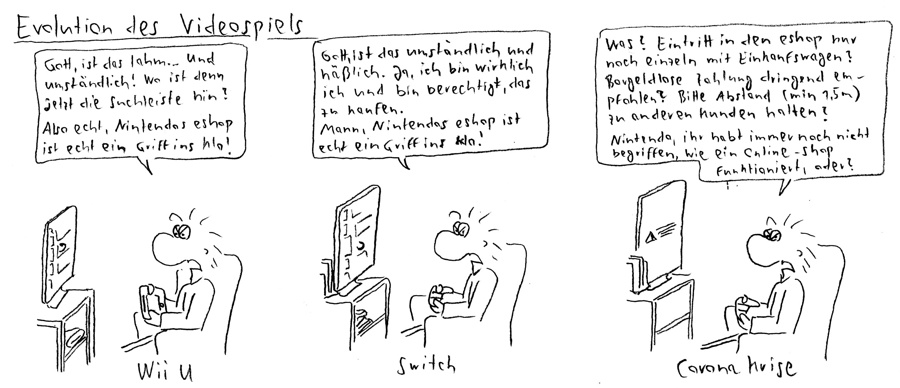 Evolution des Videospiels
Gott, ist das lahm... und
umständlich! Wo ist denn
jetzt die Suchleiste hin?
Also echt, Nintendos eshop
ist echt ein Griff ins Klo!
Gott, ist das umständlich und
häßlich. Ja, ich bin wirklich
ich und bin berechtigt, das
zu kaufen.
Mann, Nintendos eshop ist
echt ein Griff ins Klo!
Was? Eintritt in den eshop nur
noch einzeln mit Einkaufswagen?
Bargeldlose Zahlung dringend em-
pfohlen? Bitte Abstand (min 1,5m)
zu anderen Kunden halten?
Nintendo, ihr habt immer noch nicht
begriffen, wie ein Online-Shop
funktioniert, oder?
Wii U
Switch
Corona Krise